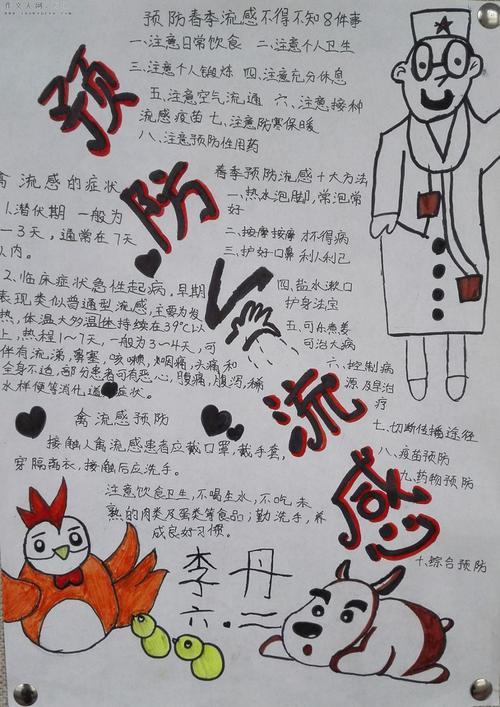 作文大网
预防春季流感不得不知8件事
一.注意日常饮食 二.注意个人卫生
三.注意个人锻炼 四.注意充分休息
五.注意空气流通 六.注意接种
流感疫苗 七.注意防寒保暖
八.注意预防性用药
预防流感
禽流感的症状
1.潜伏期 一般为
1—3天,通常在7天
以内。
2.临床症状急性起病,早期
表现类似普通型流感,主要为发
热,体温大多温体持续在39℃以
上,热程1~7天,一般为3~4天,可
伴有流涕,鼻塞,咳嗽,咽痛,头痛和
全身不适,部分患者可有恶心,腹痛,腹泻,稀
水样便等消化道症状。
春季预防流感十大方法
一.热水泡脚,常泡常
好
二.按摩按摩 不得病
三.护好口鼻 利人利己
四.盐水漱口
护身法宝
五.可乐煮姜
可治大病
六.控制病
源及早治
疗
七.切断传播途径
八.疫苗预防
九.药物预防
十.综合预防
禽流感预防
接触人禽流感患者应戴口罩,戴手套,
穿隔离衣,接触后应洗手。
注意饮食卫生,不喝生水,不吃未
熟的肉类及蛋类等食品;勤洗手,养
成良好习惯。
李丹
六.二